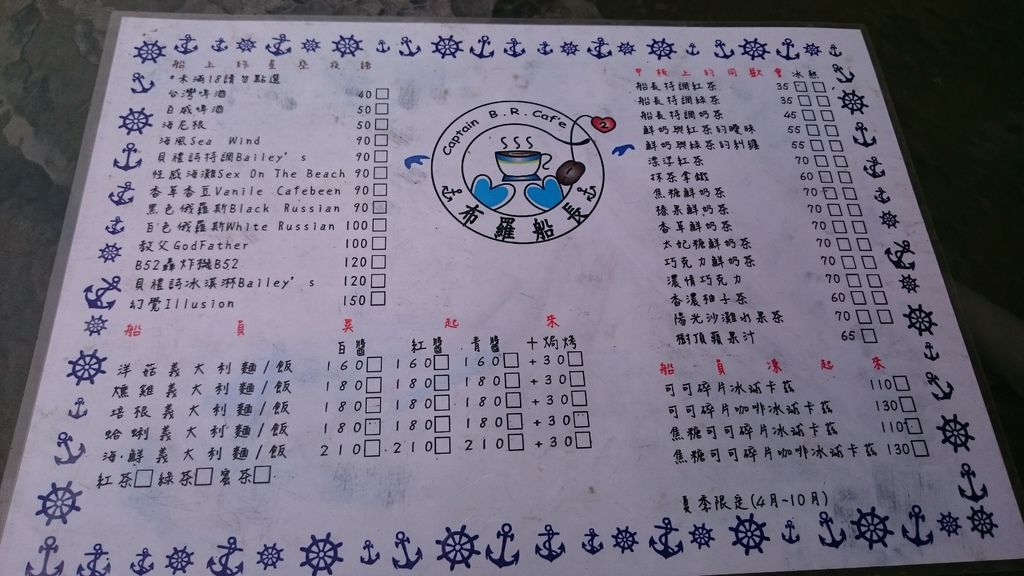 船上的星座夜語
*未滿18請勿點選
台灣啤酒 40
百威啤酒 50
海尼根 50
海風Sea Wind 90
貝禮詩特調Bailey's 90
性感海灘Sex On The Beach 90
香草香豆Vanile Cafebeen 90
黑色俄羅斯Black Russian 90
白色俄羅斯White Russian 100
教父GodFather 100
B52轟炸機B52 120
貝禮詩冰淇淋Bailey's 120
幻覺Illusion 150
船員吴起來
白醬 紅醬 青醬 +焗烤
洋菇義大利麵/飯 160 160 160 +30
燻雞義大利麵/飯 180 180 180 +30
培根義大利麵/飯 180 180 180 +30
蛤蜊義大利麵/飯 180 180 180 +30
海鮮義大利麵/飯 210 210 210 +30
紅茶 綠茶 麥茶
Captain B.R.Cafe
2
布羅船長
甲板上的同歡會 冰 熱
船長特調紅茶 35
船長特調綠茶 35
船長特調奶茶 45
鮮奶與紅茶的曖昧 55
鮮奶與綠茶的糾纏 55
漂浮紅茶 70
抹茶拿鐵 60
焦糖鮮奶茶 70
榛果鮮奶茶 70
香草鮮奶茶 70
太妃糖鮮奶茶 70
巧克力鮮奶茶 70
濃情巧克力 70
香濃柚子茶 60
陽光沙灘水果茶 70
樹頂蘋果汁 65
船員凍起來
可可碎片冰沙卡茲 110
可可碎片咖啡冰沙卡茲 130
焦糖可可碎片冰沙卡茲 110
焦糖可可碎片咖啡冰沙卡茲 130
夏季限定(4月~10月)